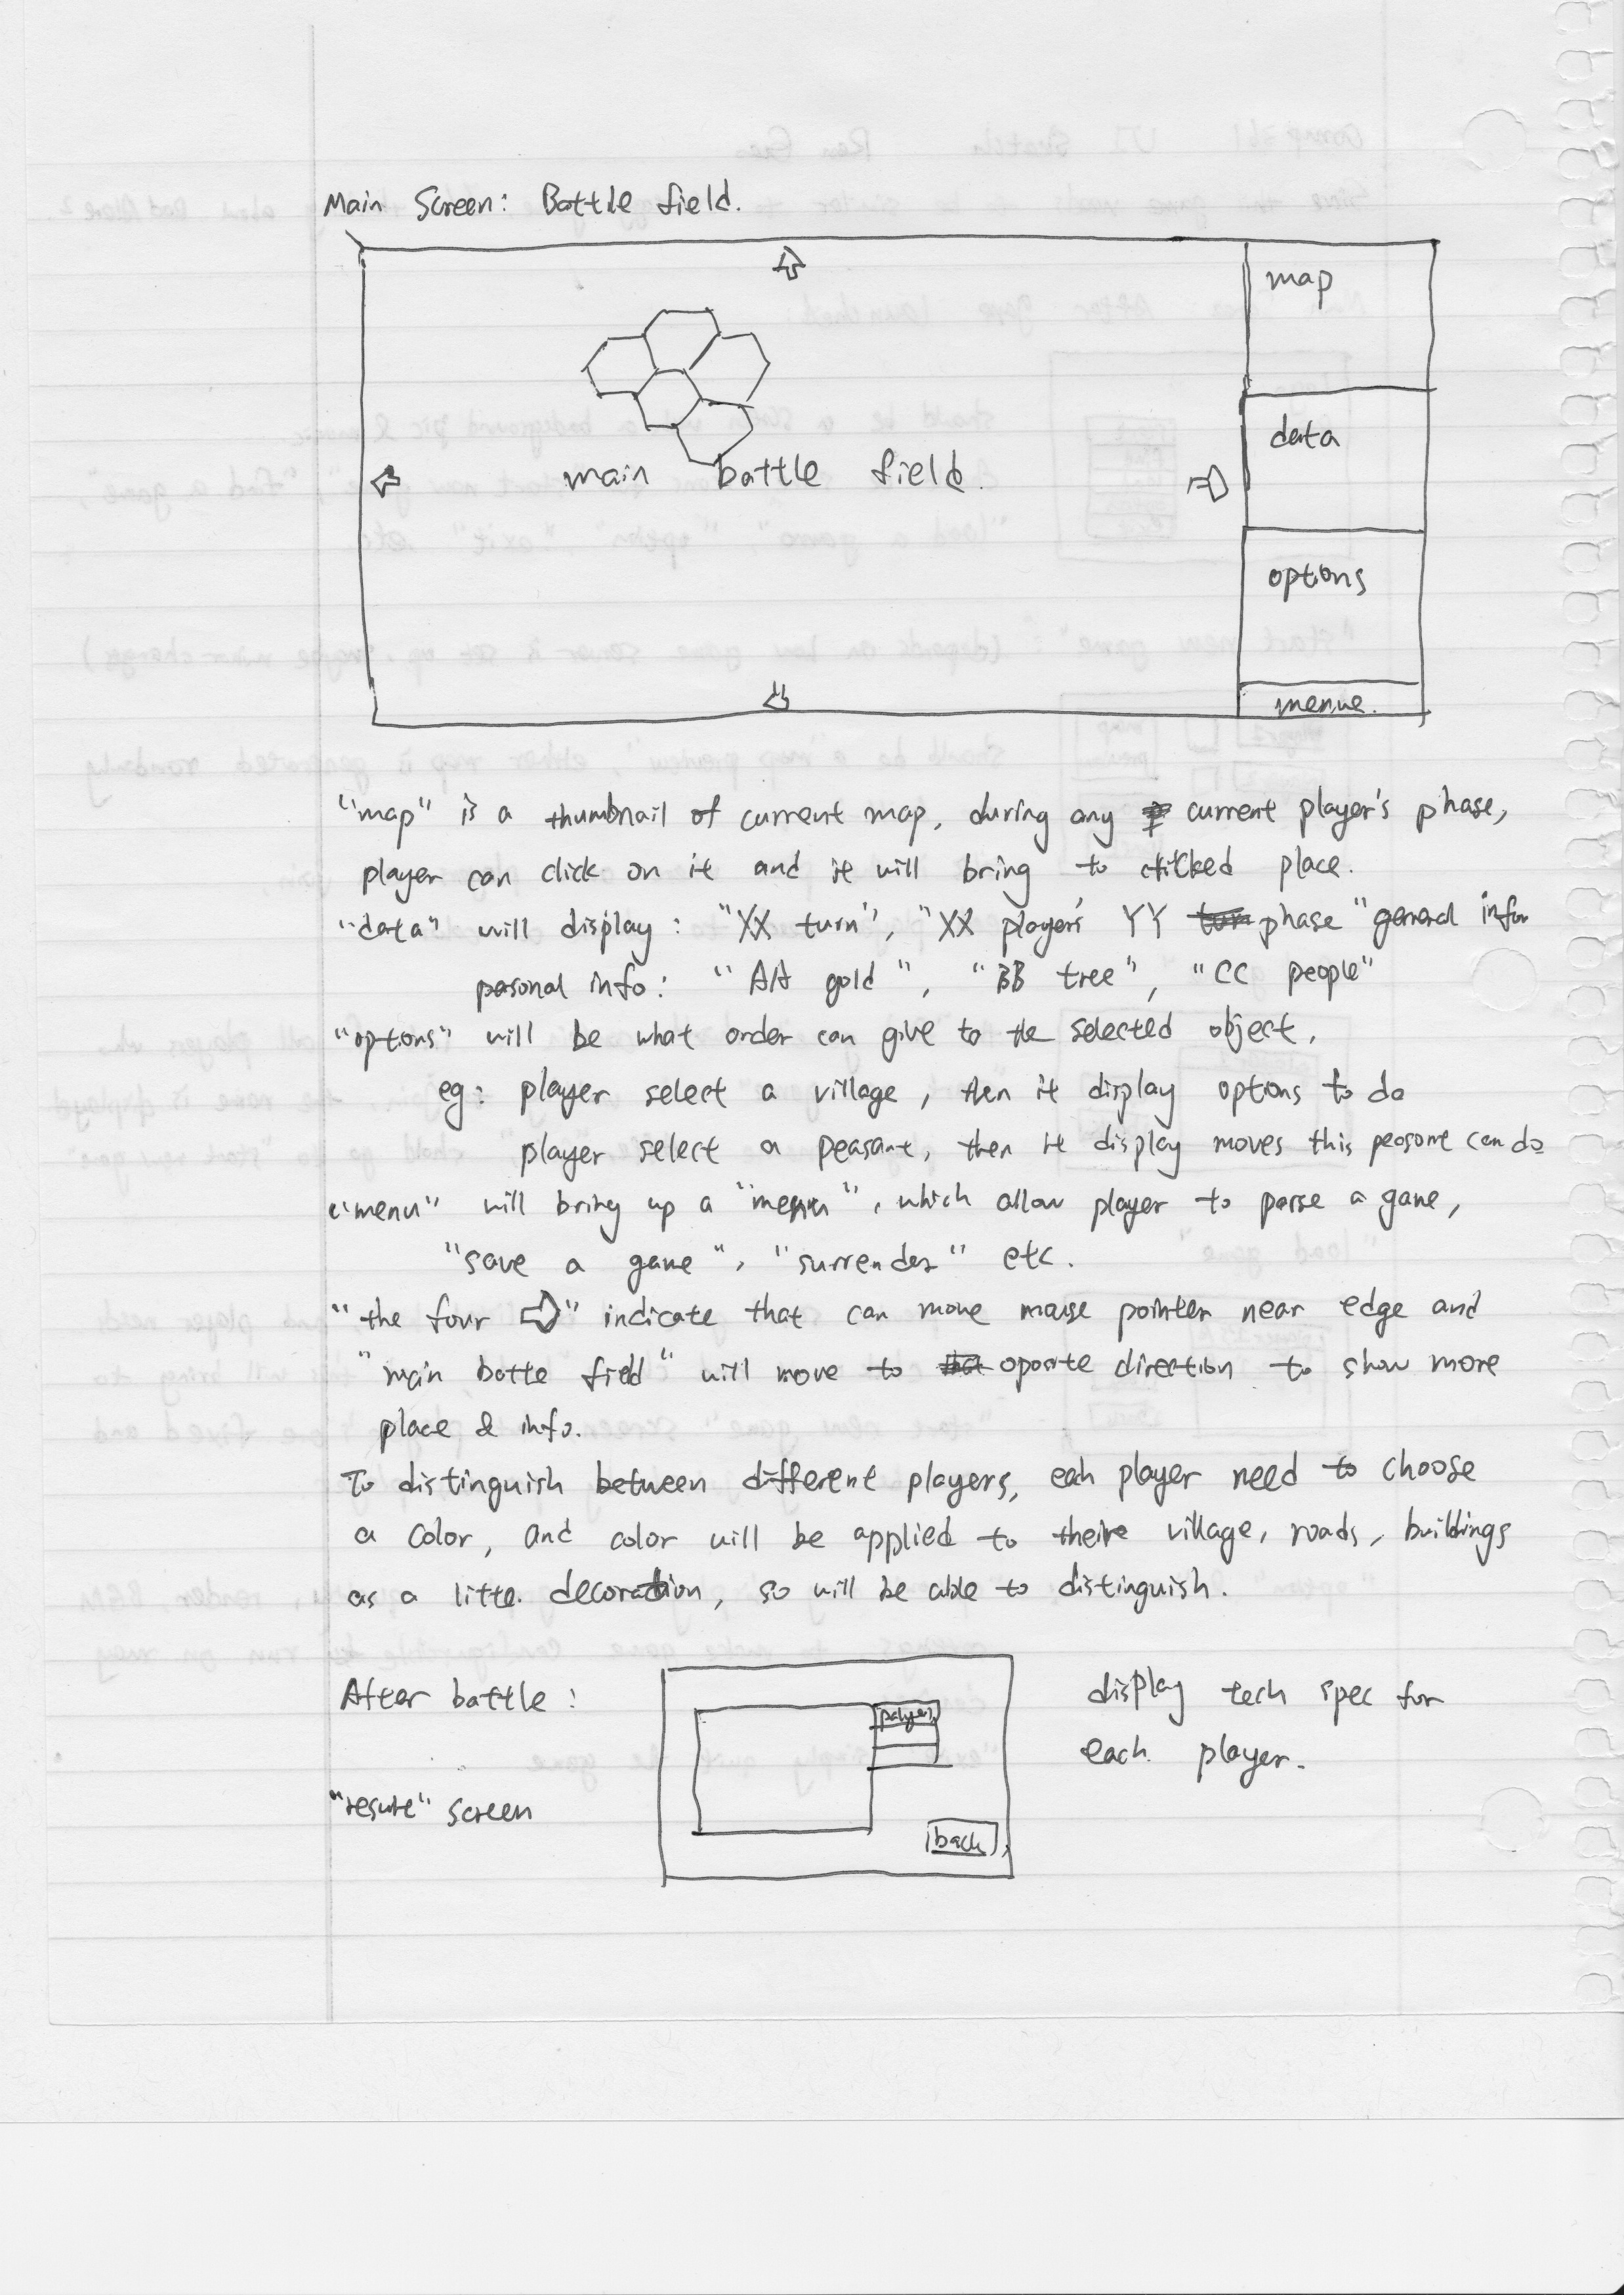 Main Screen: Battle field.
map
data
main battle field.
options
menue.
"map" is a thumbnail of current map, during any current player's phase,
player can click on it and it will bring to clicked place.
"data" will display: "XX turn", "XX player's YY turn phase" general infor
pesonal info: "AA gold", "BB tree", "CC people"
"options" will be what order can give to the selected object.
eg: player select a village, then it display options to do
player select a peasant, then it display moves this peasant can do
"menu" will bring up a "menu", which allow player to parse a game,
"save a game", "surrender" etc.
"the four ⇨" indicate that can move mouse pointer near edge and
"main botte field" will move to that oposite direction to show more
place & info.
To distinguish between different players, each player need to choose
a color, and color will be applied to their village, roads, buildings
as a litte. decoration, so will be able to distinguish.
After battle:
display tech spec for
each player.
"result" screen
back